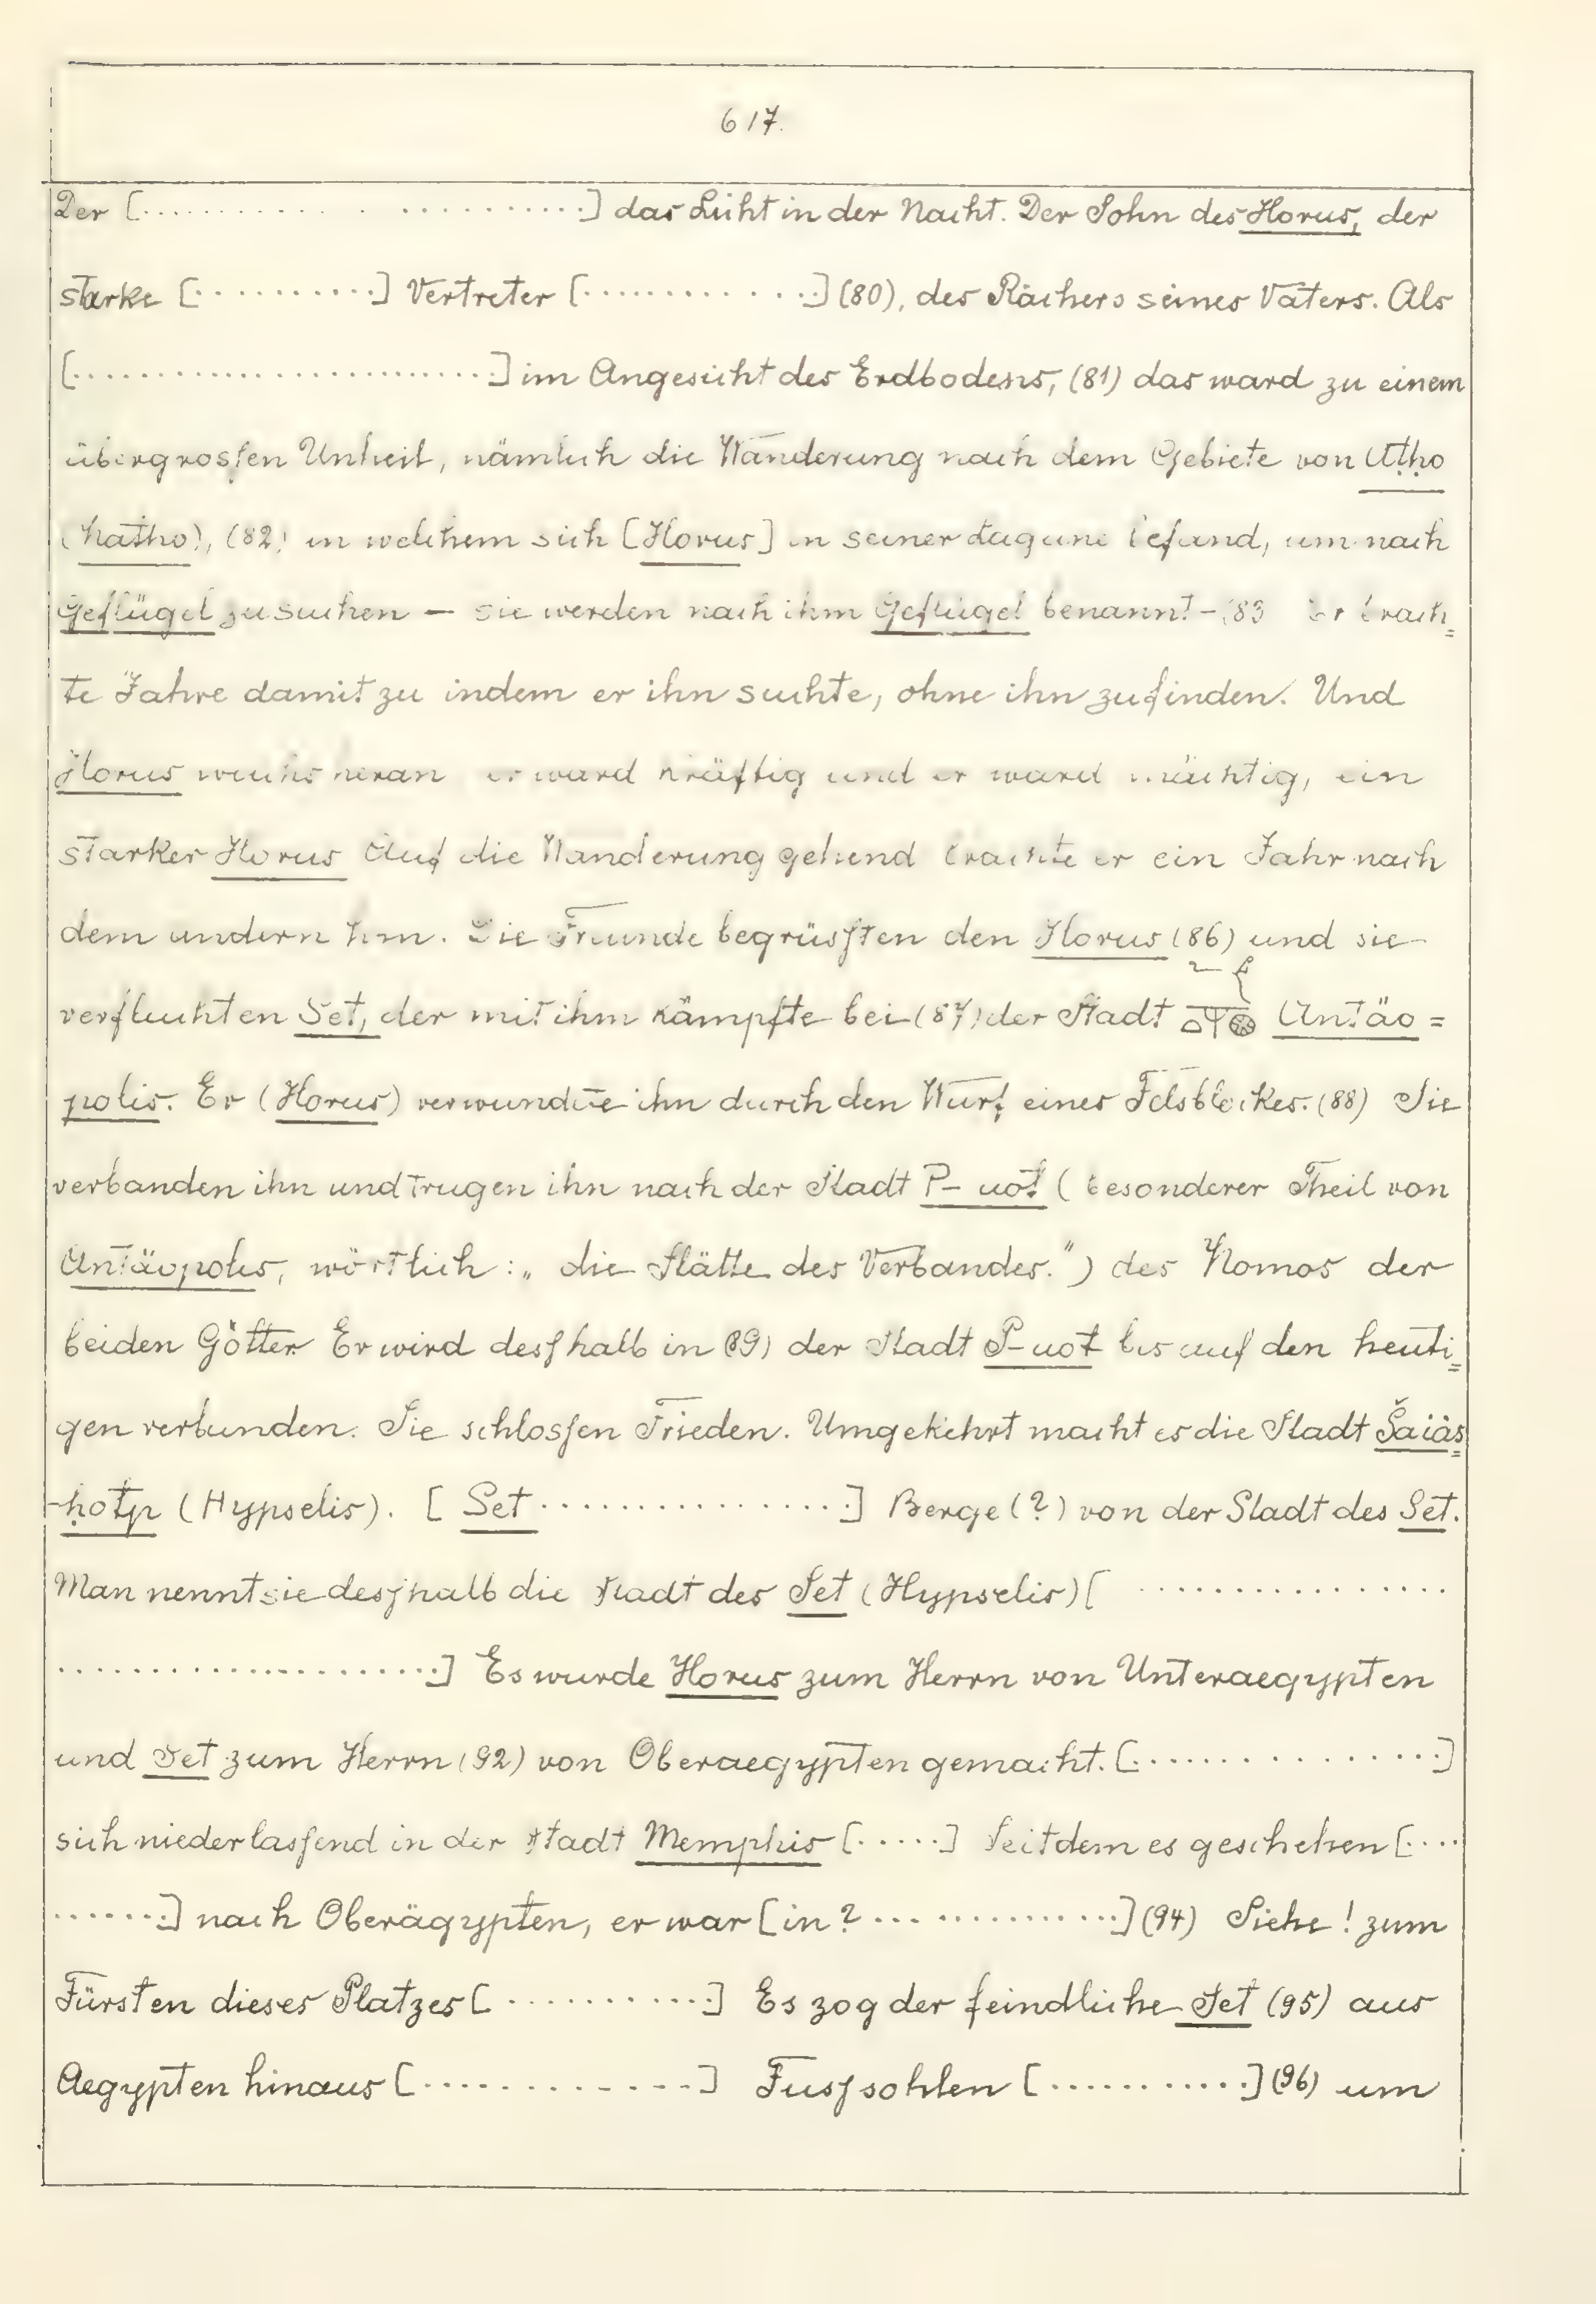 617.
Der [.....................] das Licht in der Nacht. Der Sohn des Horus, der
starke [..........] Vertreter [............] (80), des Rächers seines Vaters. Als
[........................] im Angesicht des Erdbodens, (81) das ward zu einem
übergrossen Unheil, nämlich die Wanderung nach dem Gebiete von Utho
(Natho), (82) in welchem sich [Horus] in seiner Lagune befand, um nach
Geflügel zu suchen — sie werden nach ihm Geflügel benannt — (83 Er brach=
te Jahre damit zu indem er ihn suchte, ohne ihn zu finden. Und
Horus wuchs heran er ward kräftig und er ward mächtig, ein
starker Horus Auf die Wanderung gehend brachte er ein Jahr nach
dem andern hin. Die Freunde begrüssten den Horus (86) und sie
verfluchten Set, der mit ihm kämpfte bei (87) der Stadt Antäo=
polis. Er (Horus) verwundete ihn durch den Wurf eines Felsblockes. (88) Sie
verbanden ihn und trugen ihn nach der Stadt P-uot (besonderer Theil von
Antäopolis, wörtlich: „die Stätte des Verbandes.") des Nomos der
beiden Götter Er wird desshalb in (89) der Stadt P-uot bis auf den heuti=
gen verbunden. Sie schlossen Frieden. Umgekehrt macht es die Stadt Šaiâs=
-ḥotp (Hypselis). [Set ................] Berge (?) von der Stadt des Set.
Man nennt sie desshalb die Stadt des Set (Hypselis) [ ................
....................] Es wurde Horus zum Herrn von Unteraegypten
und Set zum Herrn (92) von Oberaegypten gemacht. [...............]
sich niederlassend in der Stadt Memphis [.....] Seitdem es geschehen [....
......] nach Oberägypten, er war [in? ...............] (94) Siehe! zum
Fürsten dieses Platzes [...........] Es zog der feindliche Set (95) aus
Aegypten hinaus [..............] Fusssohlen [...........] (96) um